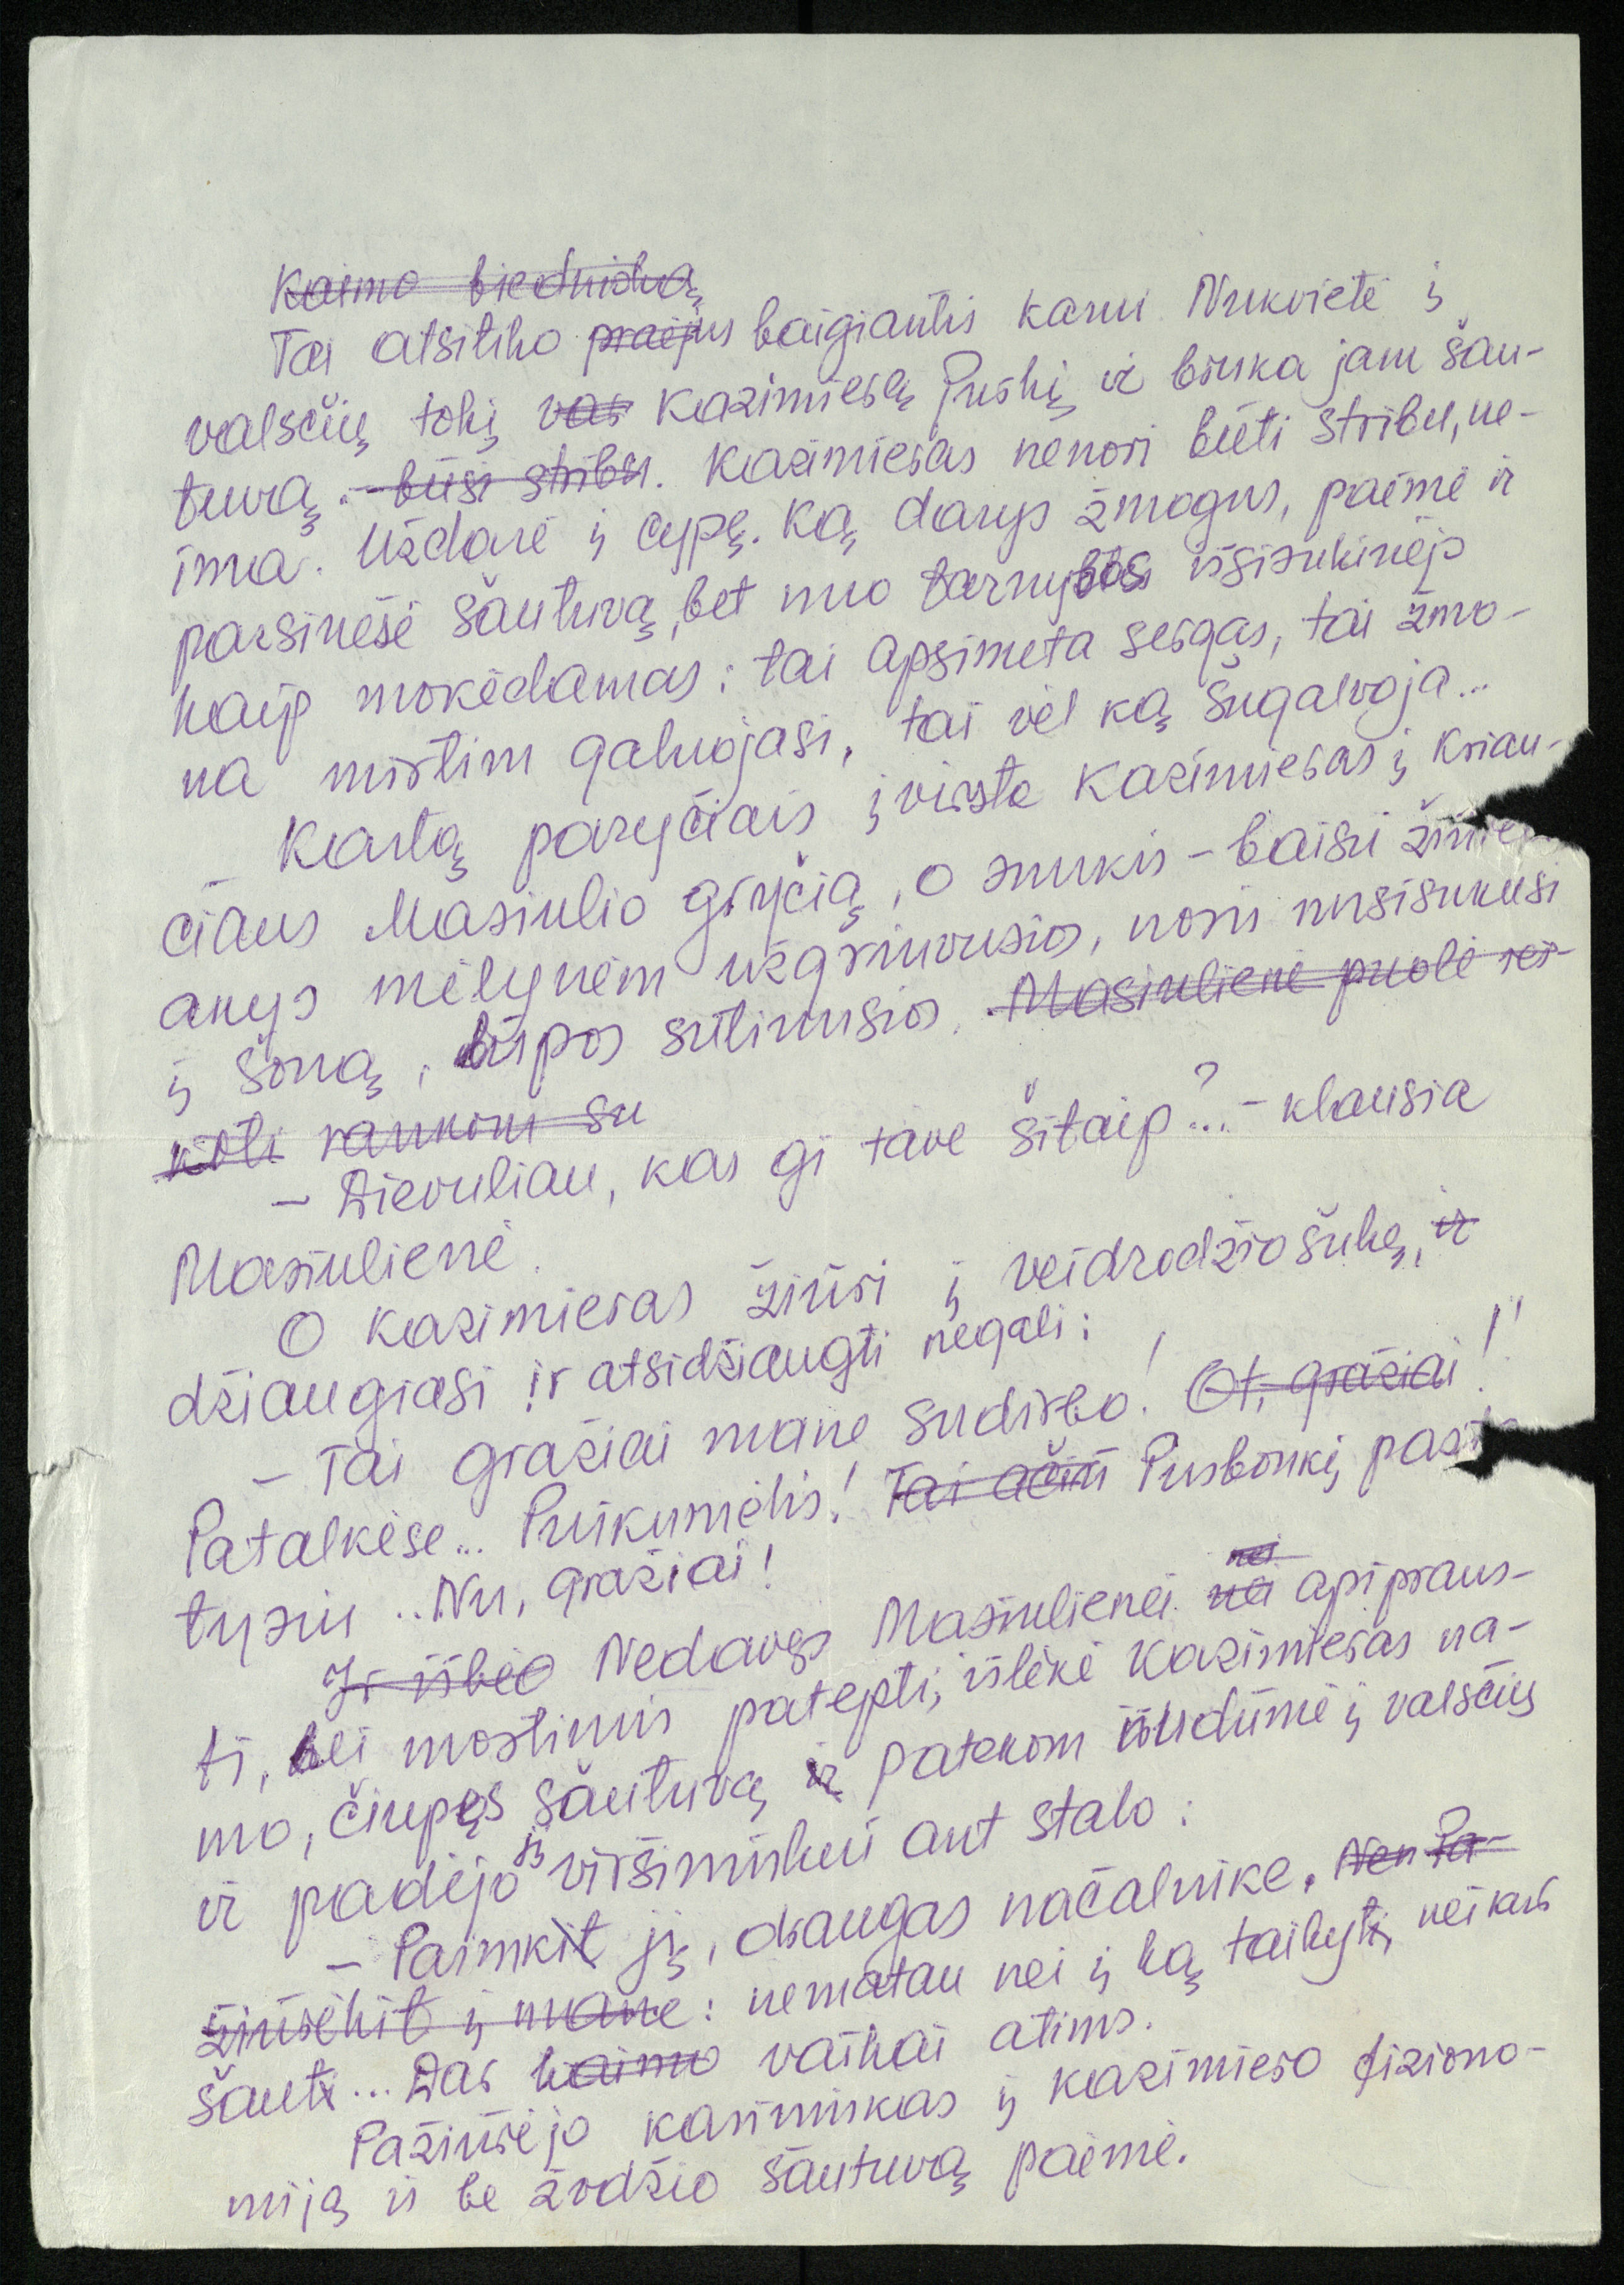 Kaimo biednioką
Tai atsitiko praėjus baigiantis karui. Nukvietė į
valsčių tokį vas Kazimierą Puškį ir bruka jam šau-
tuvą. – būsi stribu. Kazimieras nenori būti stribu, ne-
ima. Uždarė į cypę. Ką darys žmogus, paėmė ir
parsinešė šautuvą, bet nuo tarnybos išsisukinėjo
kaip mokėdamas: tai apsimeta sergąs, tai žmo-
na mirtim galuojasi, tai vėl ką sugalvoja...
Kartą paryčiais įvirsta Kazimieras į kriau-
čiaus Masiulio gryčią, o snukis – baisu žiūrė
akys mėlynėm užgriuvusios, nosis nusisukusi
į šoną, lūpos sutinusios. Masiulienė puolė rė-
kioti rankom su
– Dievuliau, kas gi tave šitaip?... – klausia
Masiulienė.
O Kazimieras žiūri į veidrodžio šukę, ir
džiaugiasi ir atsidžiaugti negali:
– Tai gražiai mane sudirbo! Ot, gražiai!
Patalkėse... Puikumėlis! Tai ačiū Pusbonkį past
tysiu... Nu, gražiai!
Ir išbėo Nedavęs Masiulienei nei nei apipraus-
ti, nei mostimis patepti, išlėkė Kazimieras na-
mo, čiupęs šautuvą ir patekom nudūmė į valsčių
ir padėjo jį viršininkui ant stalo:
– Paimkit jį, draugas načalnike. Nen Pa-
žiūrėkit į mane: nematau nei į ką taikyti, nei kur
šauti... Dar kaimo vaikai atims.
Pažiūrėjo kariniškas į Kazimiero fiziono-
miją ir be žodžio šautuvą paėmė.